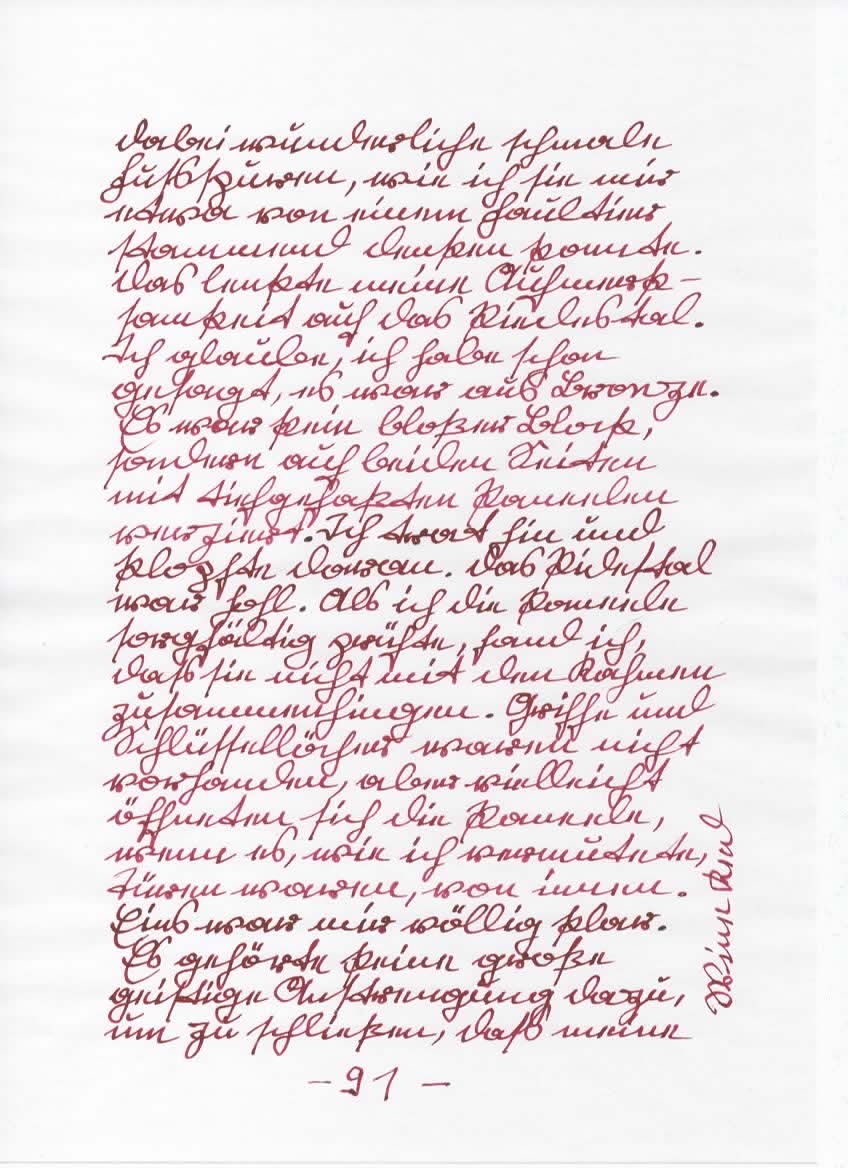 dabei wunderliche schmale
Fußspuren, wie ich sie mir
etwa von einem Faultier
stammend denken konnte.
Das lenkte meine Aufmerk-
samkeit auf das Piedestal.
Ich glaube, ich habe schon
gesagt, es war aus Bronze.
Es war kein bloßer Block,
sondern auf beiden Seiten
mit tiefgefaßten Paneelen
verziert. Ich trat hin und
klopfte daran. Das Pidestal
war hohl. Als ich die Paneele
sorgfältig prüfte, fand ich,
daß sie nicht mit den Rahmen
zusammenhingen. Griffe und
Schlüssellöcher waren nicht
vorhanden, aber vielleicht
öffneten sich die Paneele,
wenn es, wie ich vermutete,
Türen waren, von innen.
Eins war mir völlig klar.
Es gehörte keine große
geistige Anstrengung dazu,
um zu schließen, daß meine
- 91 -